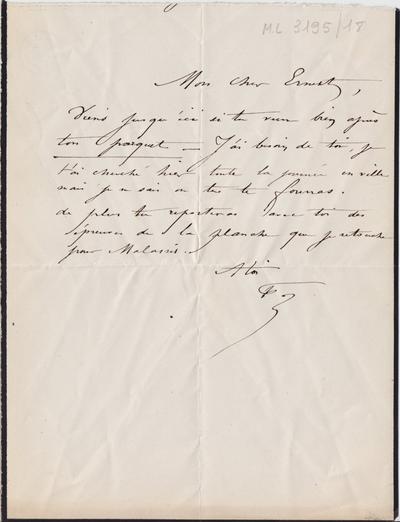 ML 3195/18
Mon cher Ernest,
Viens jusqu'ici si tu veux bien après
ton parquet — J'ai besoin de toi, je
t'ai cherché hier toute la journée en ville
mais je ne sais où tu te fourras.
de plus tu reporteras avec toi des
épreuves de la planche que je retouche
pour Malassis.
A toi